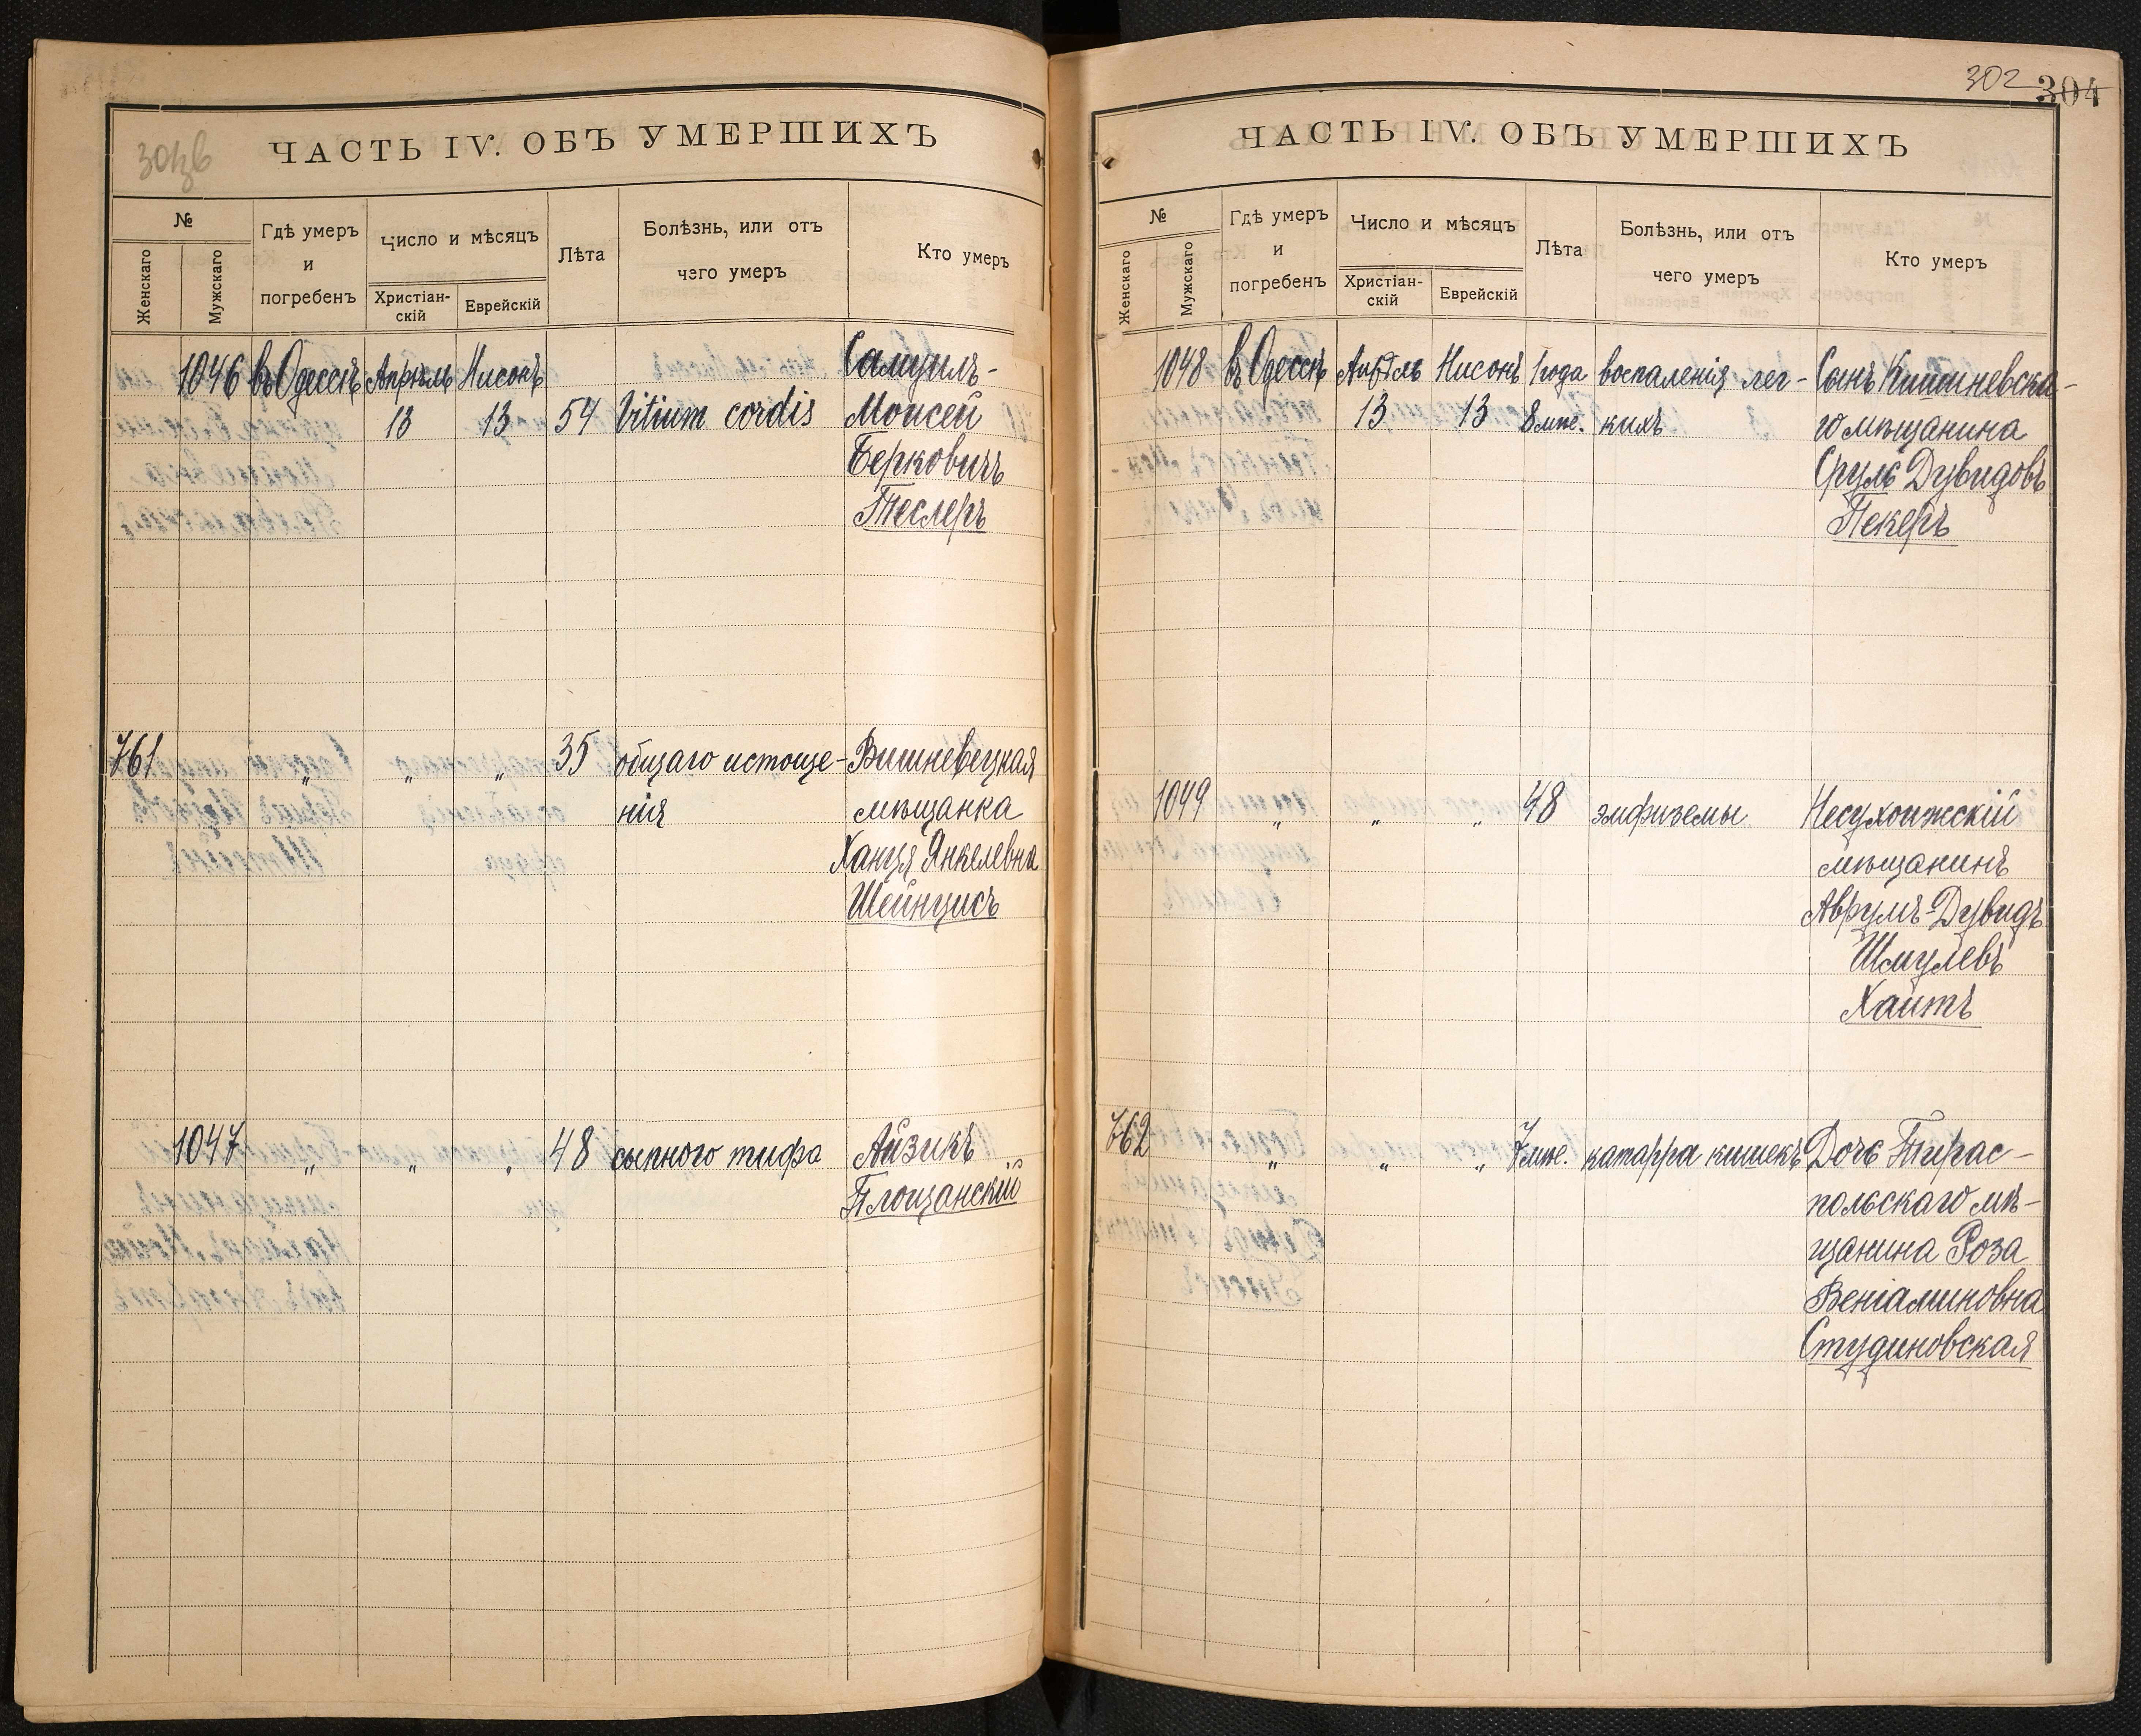 30 зв
ЧАСТЬ IV. ОБЪ УМЕРШИХЪ
№
Женскаго
Мужскаго
Гдѣ умеръ
и
погребенъ
Число и мѣсяцъ
Христіан-
скій
Еврейскій
Лѣта
Болѣзнь, или отъ
чего умеръ
Кто умеръ
1046 въ Одессѣ Апрѣль Нисонъ Самуилъ-
13 13 54 Vitium cordis Моисей
Берковичъ
Теслеръ
761 „ „ „ 35 общаго истоще- Вишневецкая
нія мѣщанка
Ханця Янкелевна
Шейнцисъ
1047 „ „ „ 48 сыпного тифа Айзикъ
Площанскій
302 304
ЧАСТЬ IV. ОБЪ УМЕРШИХЪ
№
Женскаго
Мужскаго
Гдѣ умеръ
и
погребенъ
Число и мѣсяцъ
Христіан-
скій
Еврейскій
Лѣта
Болѣзнь, или отъ
чего умеръ
Кто умеръ
1048 въ Одессѣ Апрѣль Нисонъ 1 года воспаленія лег- Сынъ Кишиневска-
13 13 8 мѣс. кихъ го мѣщанина
Сруль Дувидовъ
Пекеръ
1049 „ „ „ 48 эмфиземы Несухоижскій
мѣщанинъ
Аврумъ-Дувидъ
Шмулевъ
Хаитъ
762 „ „ „ 7 мѣс. катарра кишекъ Дочь Тирас-
польскаго мѣ-
щанина Роза
Веніаминовна
Студиновская